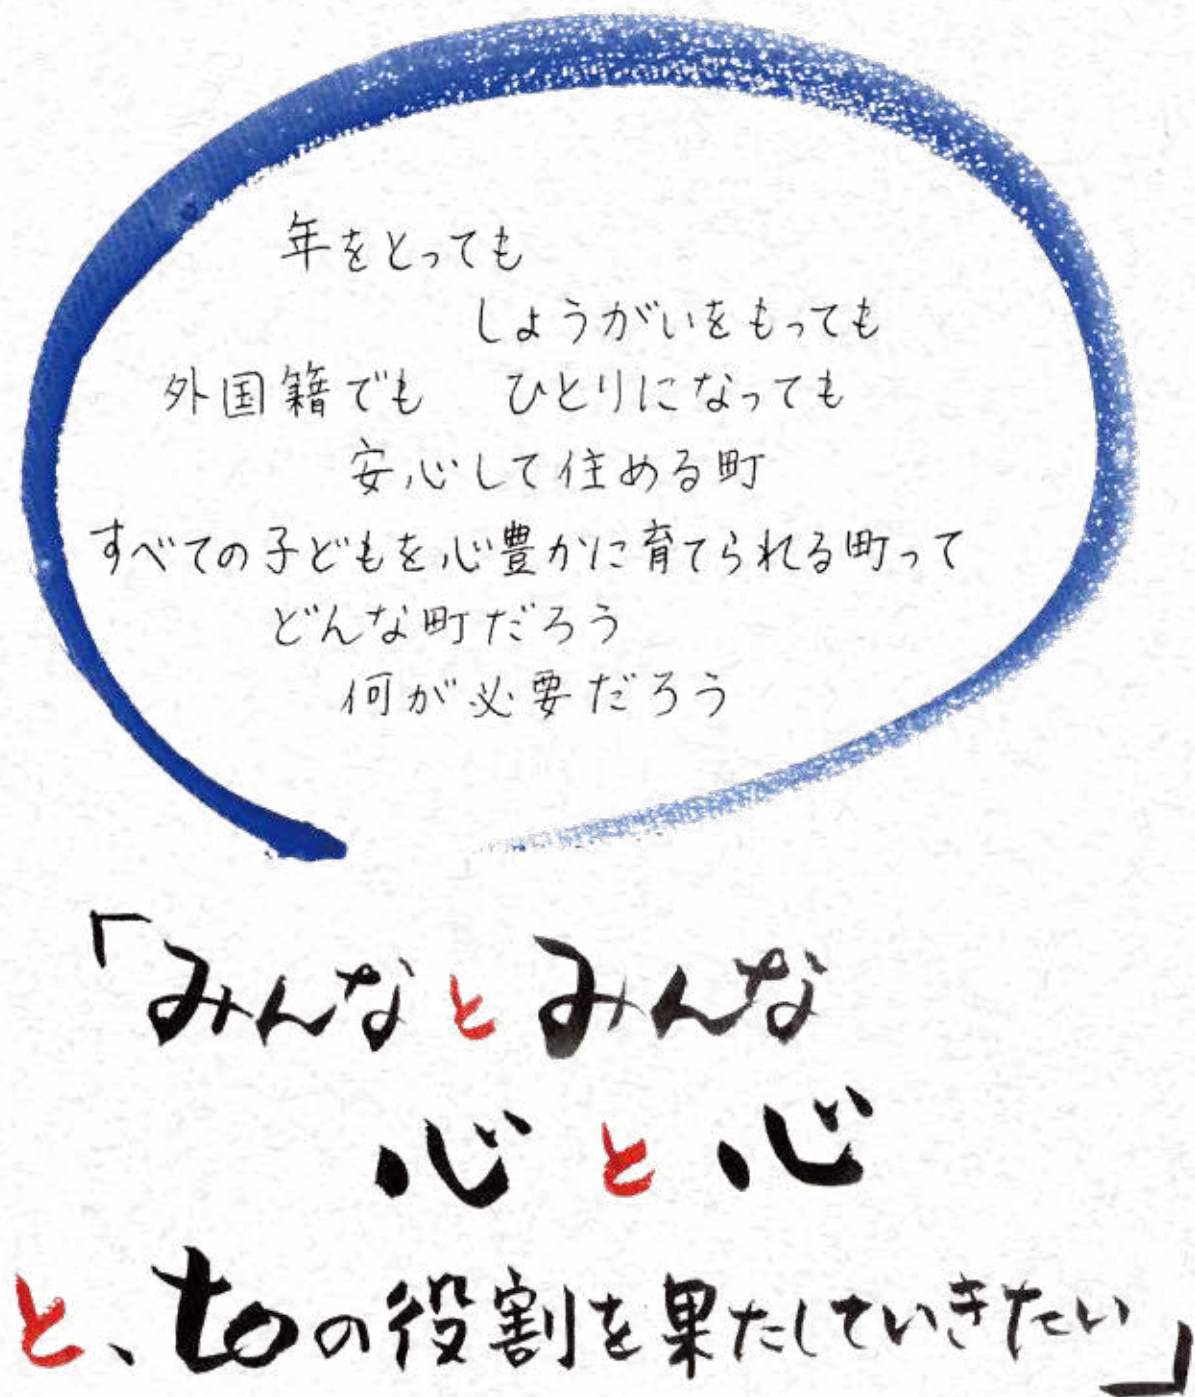 年をとっても
しょうがいをもっても
外国籍でも ひとりになっても
安心して住める町
すべての子どもを心豊かに育てられる町って
どんな町だろう
何が必要だろう
「みんなとみんな
心と心
と、toの役割を果たしていきたい」